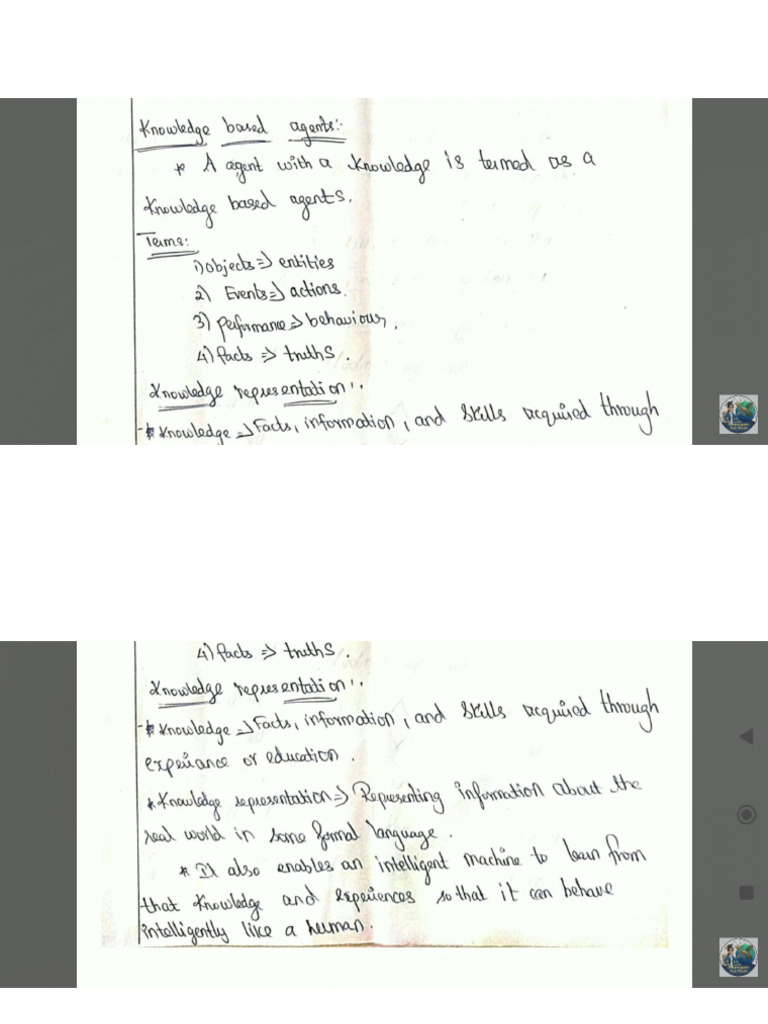 Knowledge based agents:
* A agent with a knowledge is termed as a
knowledge based agents.
Terms:
1) objects => entities
2) Events => actions.
3) performance => behaviour.
4) facts => truths.
Knowledge representation:
* Knowledge => Facts, information, and skills acquired through
4) facts => truths.
Knowledge representation:
* Knowledge => Facts, information, and skills acquired through
experiance or education.
* Knowledge representation => Representing information about the
real world in some formal language.
* It also enables an intelligent machine to learn from
that knowledge and experiences so that it can behave
intelligently like a human.